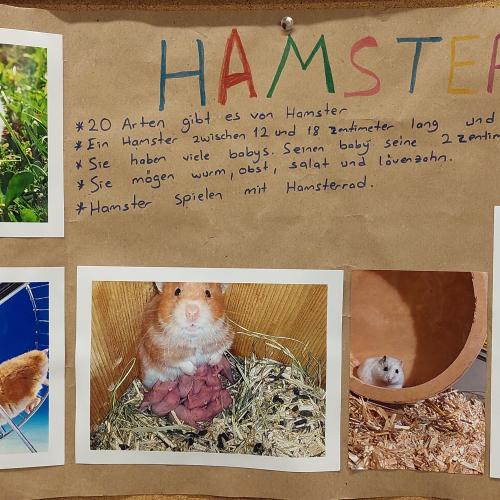 HAMSTER
* 20 Arten gibt es von Hamster
* Ein Hamster zwischen 12 und 18 zentimeter lang und
* Sie haben viele babys. Seinen baby seine 2 zentim
* Sie mögen wurm, obst, salat und lövenzahn.
* Hamster spielen mit Hamsterrad.